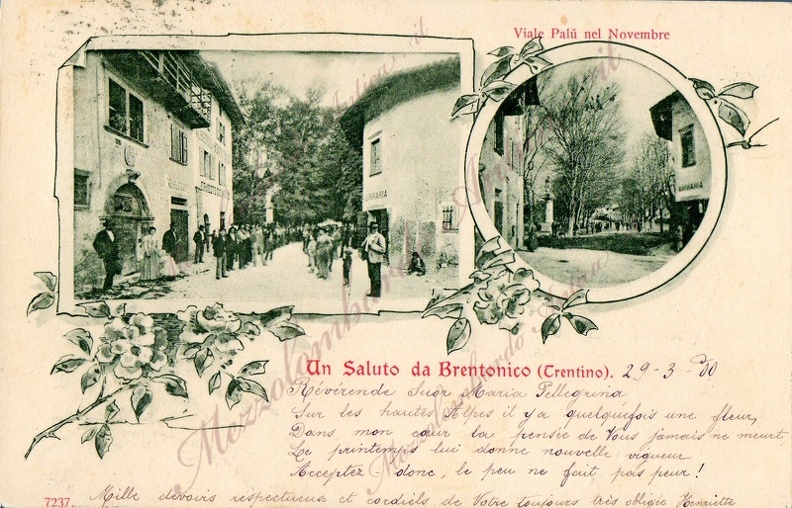 Viale Palú nel Novembre
BIRRARIA
BIRRARIA
Un Saluto da Brentonico (Trentino). 29-3-00
Révérende Suor Maria Pellegrina
Sur les hautes Alpes il y a quelquefois une fleur,
Dans mon cœur la pensée de Vous jamais ne meurt,
Le printemps lui donne nouvelle vigueur
Acceptez donc, le peu ne fait pas peur!
7237.
Mille devoirs respectueux et cordiels de Votre toujours très obligée Henriette
Mezzolombardo Antica .it